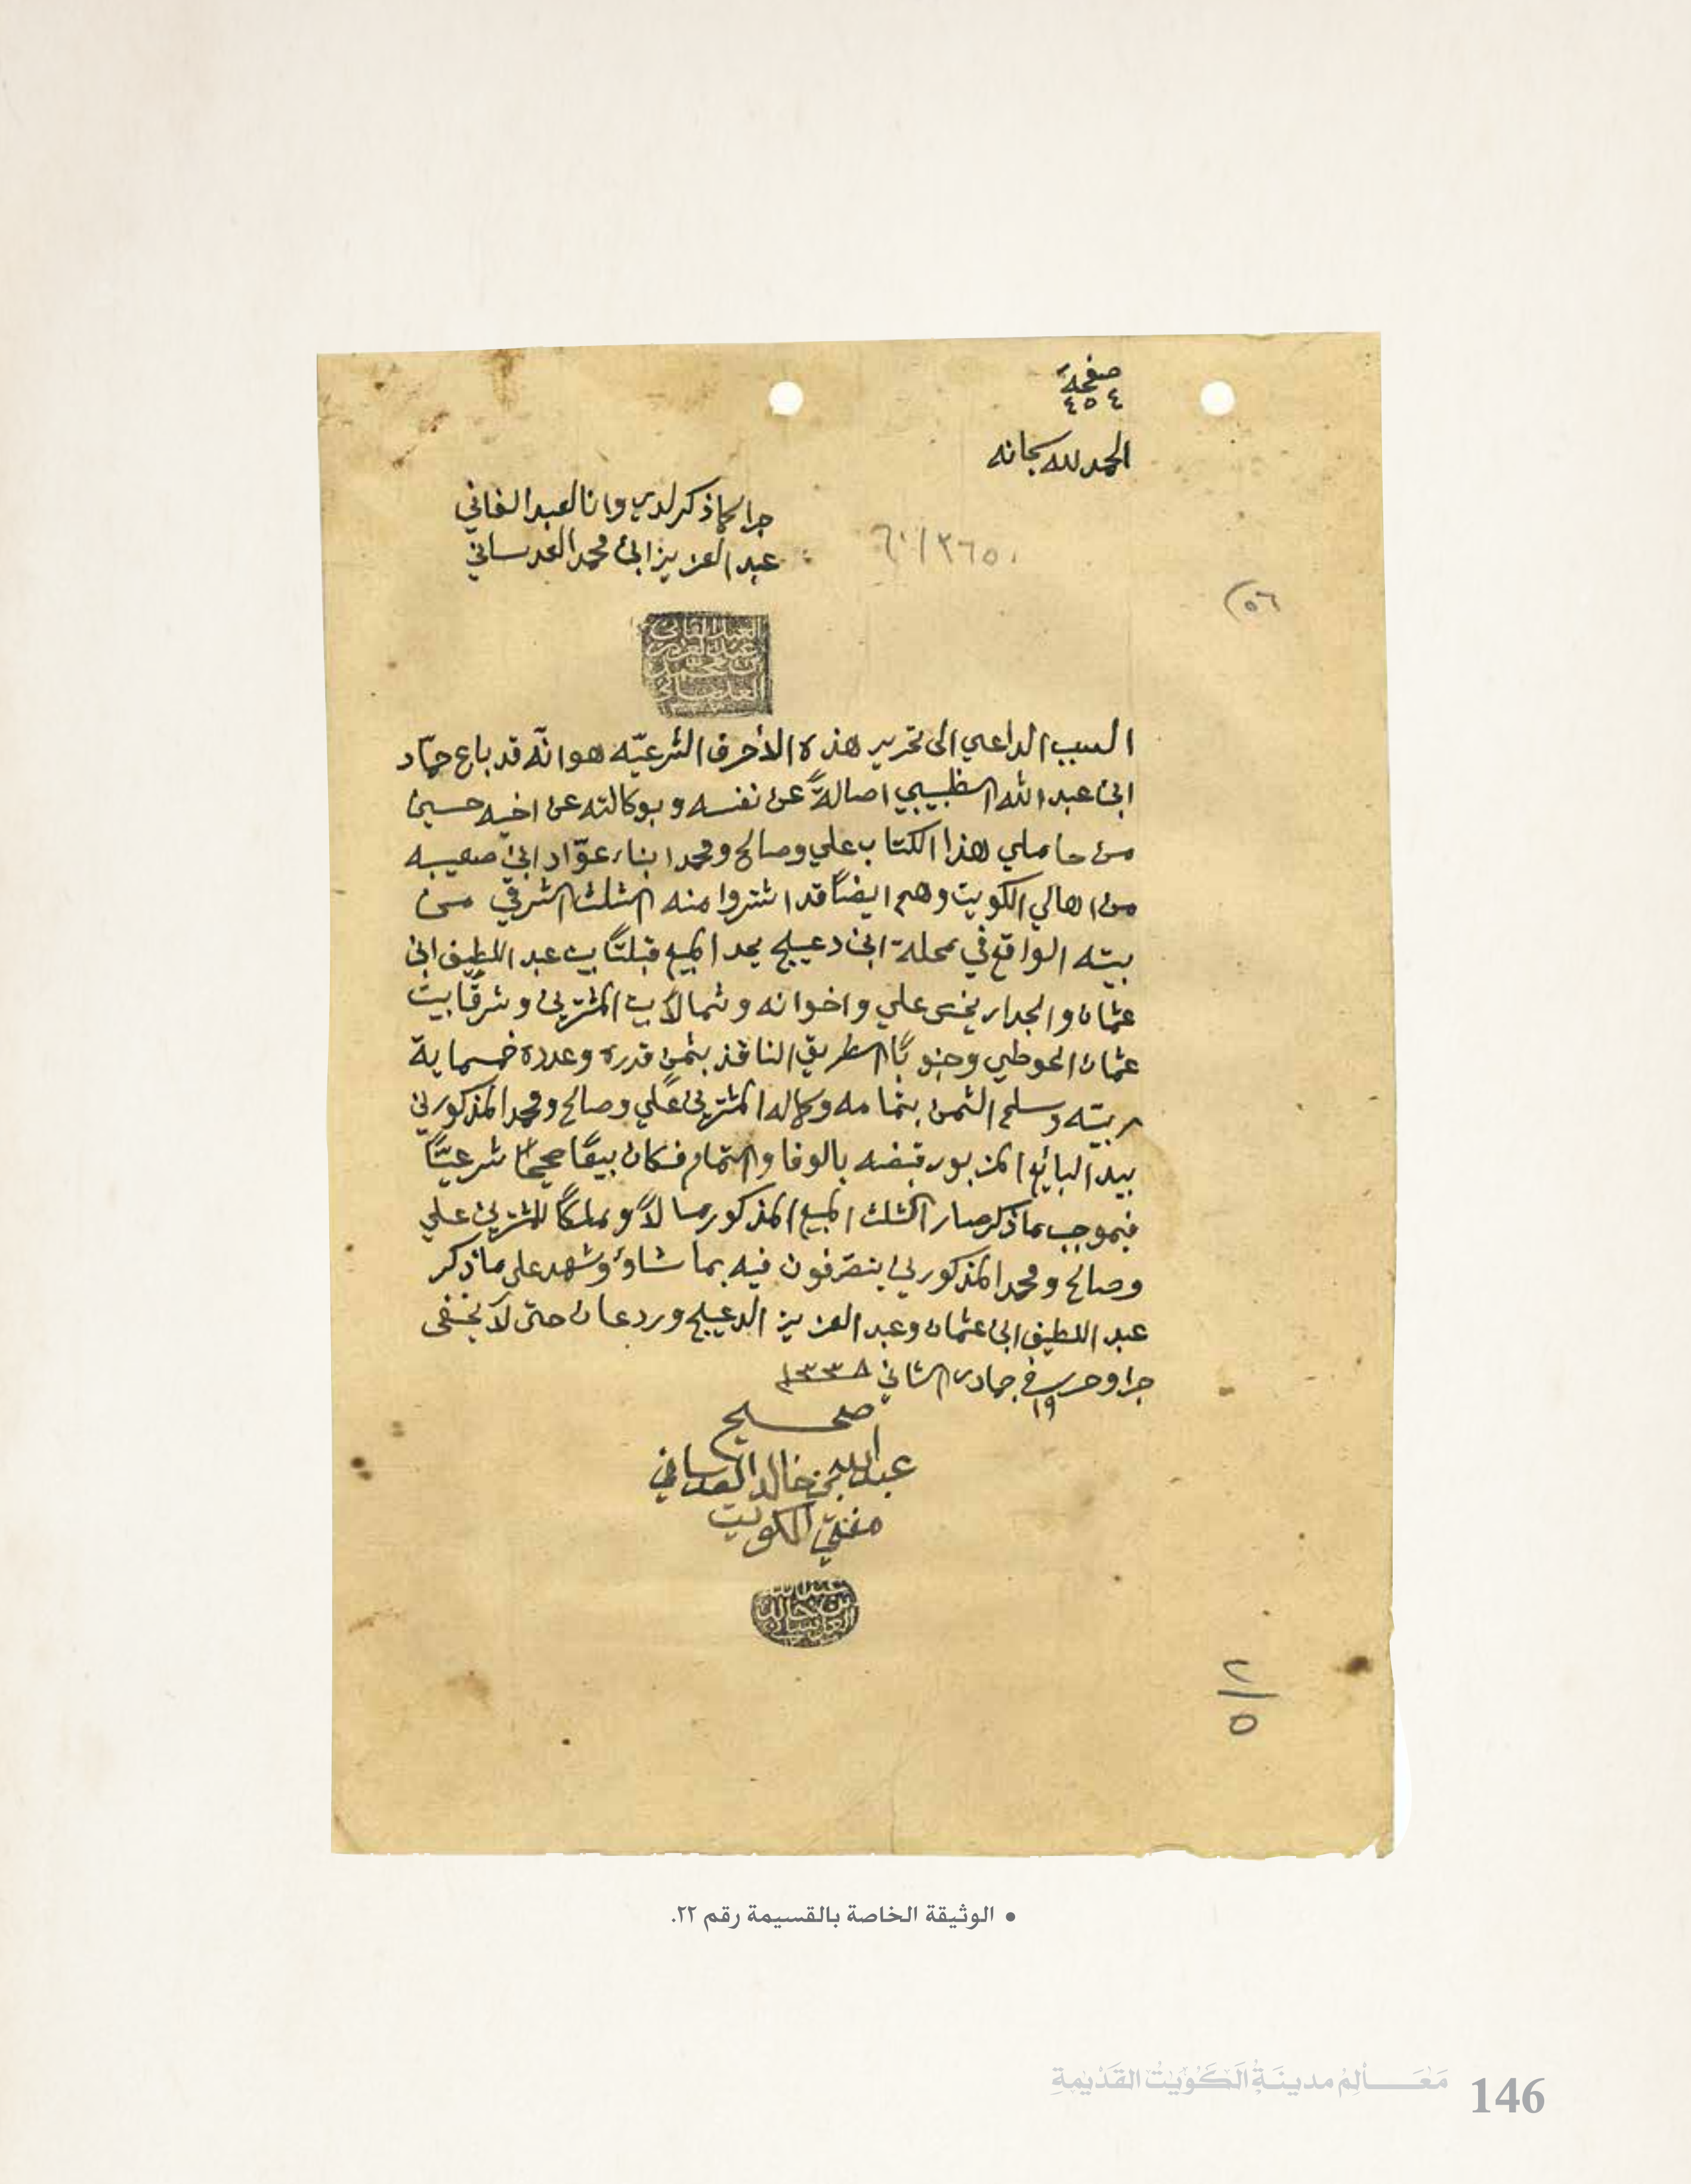 صفحة
٤٥٤
الحمد لله سبحانه
جرا كما ذكر لدي وانا العبد الفاني
عبد العزيز ابن محمد العدساني
٥٦
العبد الفاني
عبد العزيز
بن محمد
العدساني
السبب الداعي الى تحرير هذه الأحرف الشرعيّه هو انّه قد باع حمّاد
ابن عبد الله الطبيبي اصالةً عن نفسه وبوكالته عن اخيه حسين
من حاملي هذا الكتاب علي وصالح ومحمد ابناء عوّاد ابن صعيبه
من اهالي الكويت وهم ايضًا قد اشتروا منه الثلث الشرقي من
بيته الواقع في محلة ابن دعيج يحد المبيع قبلتًا بيت عبد اللطيف ابن
عثمان والجدار يخص علي واخوانه وشمالاً بيت المشترين وشرقًا بيت
عثمان الحوطي وجنوبًا الطريق النافذ بثمن قدره وعدده خمسماية
ربيّه وسلم الثمن بتمامه وكماله المشترين علي وصالح ومحمد المذكورين
بيد البائع المزبور قبضه بالوفا والتمام فكان بيعًا صحيحًا شرعيًّا
فبموجب ما ذكر صار الثلث المبيع المذكور مالاً وملكًا للمشترين علي
وصالح ومحمد المذكورين يتصرفون فيه بما شاؤ وشهد على ما ذكر
عبد اللطيف ابن عثمان وعبد العزيز الدعيج وردعان حتى لا يخفى
جرا وحرر في ١٩ جمادى الثاني ١٣٣٨
صحيح
عبد الله بن خالد العدساني
مفتي الكويت
عبد الله
بن خالد
العدساني
٢/٥
• الوثيقة الخاصة بالقسيمة رقم ٢٢.
مَعَالِمُ مدينَةِ الكُوَيْتِ القَدِيْمَةِ 146